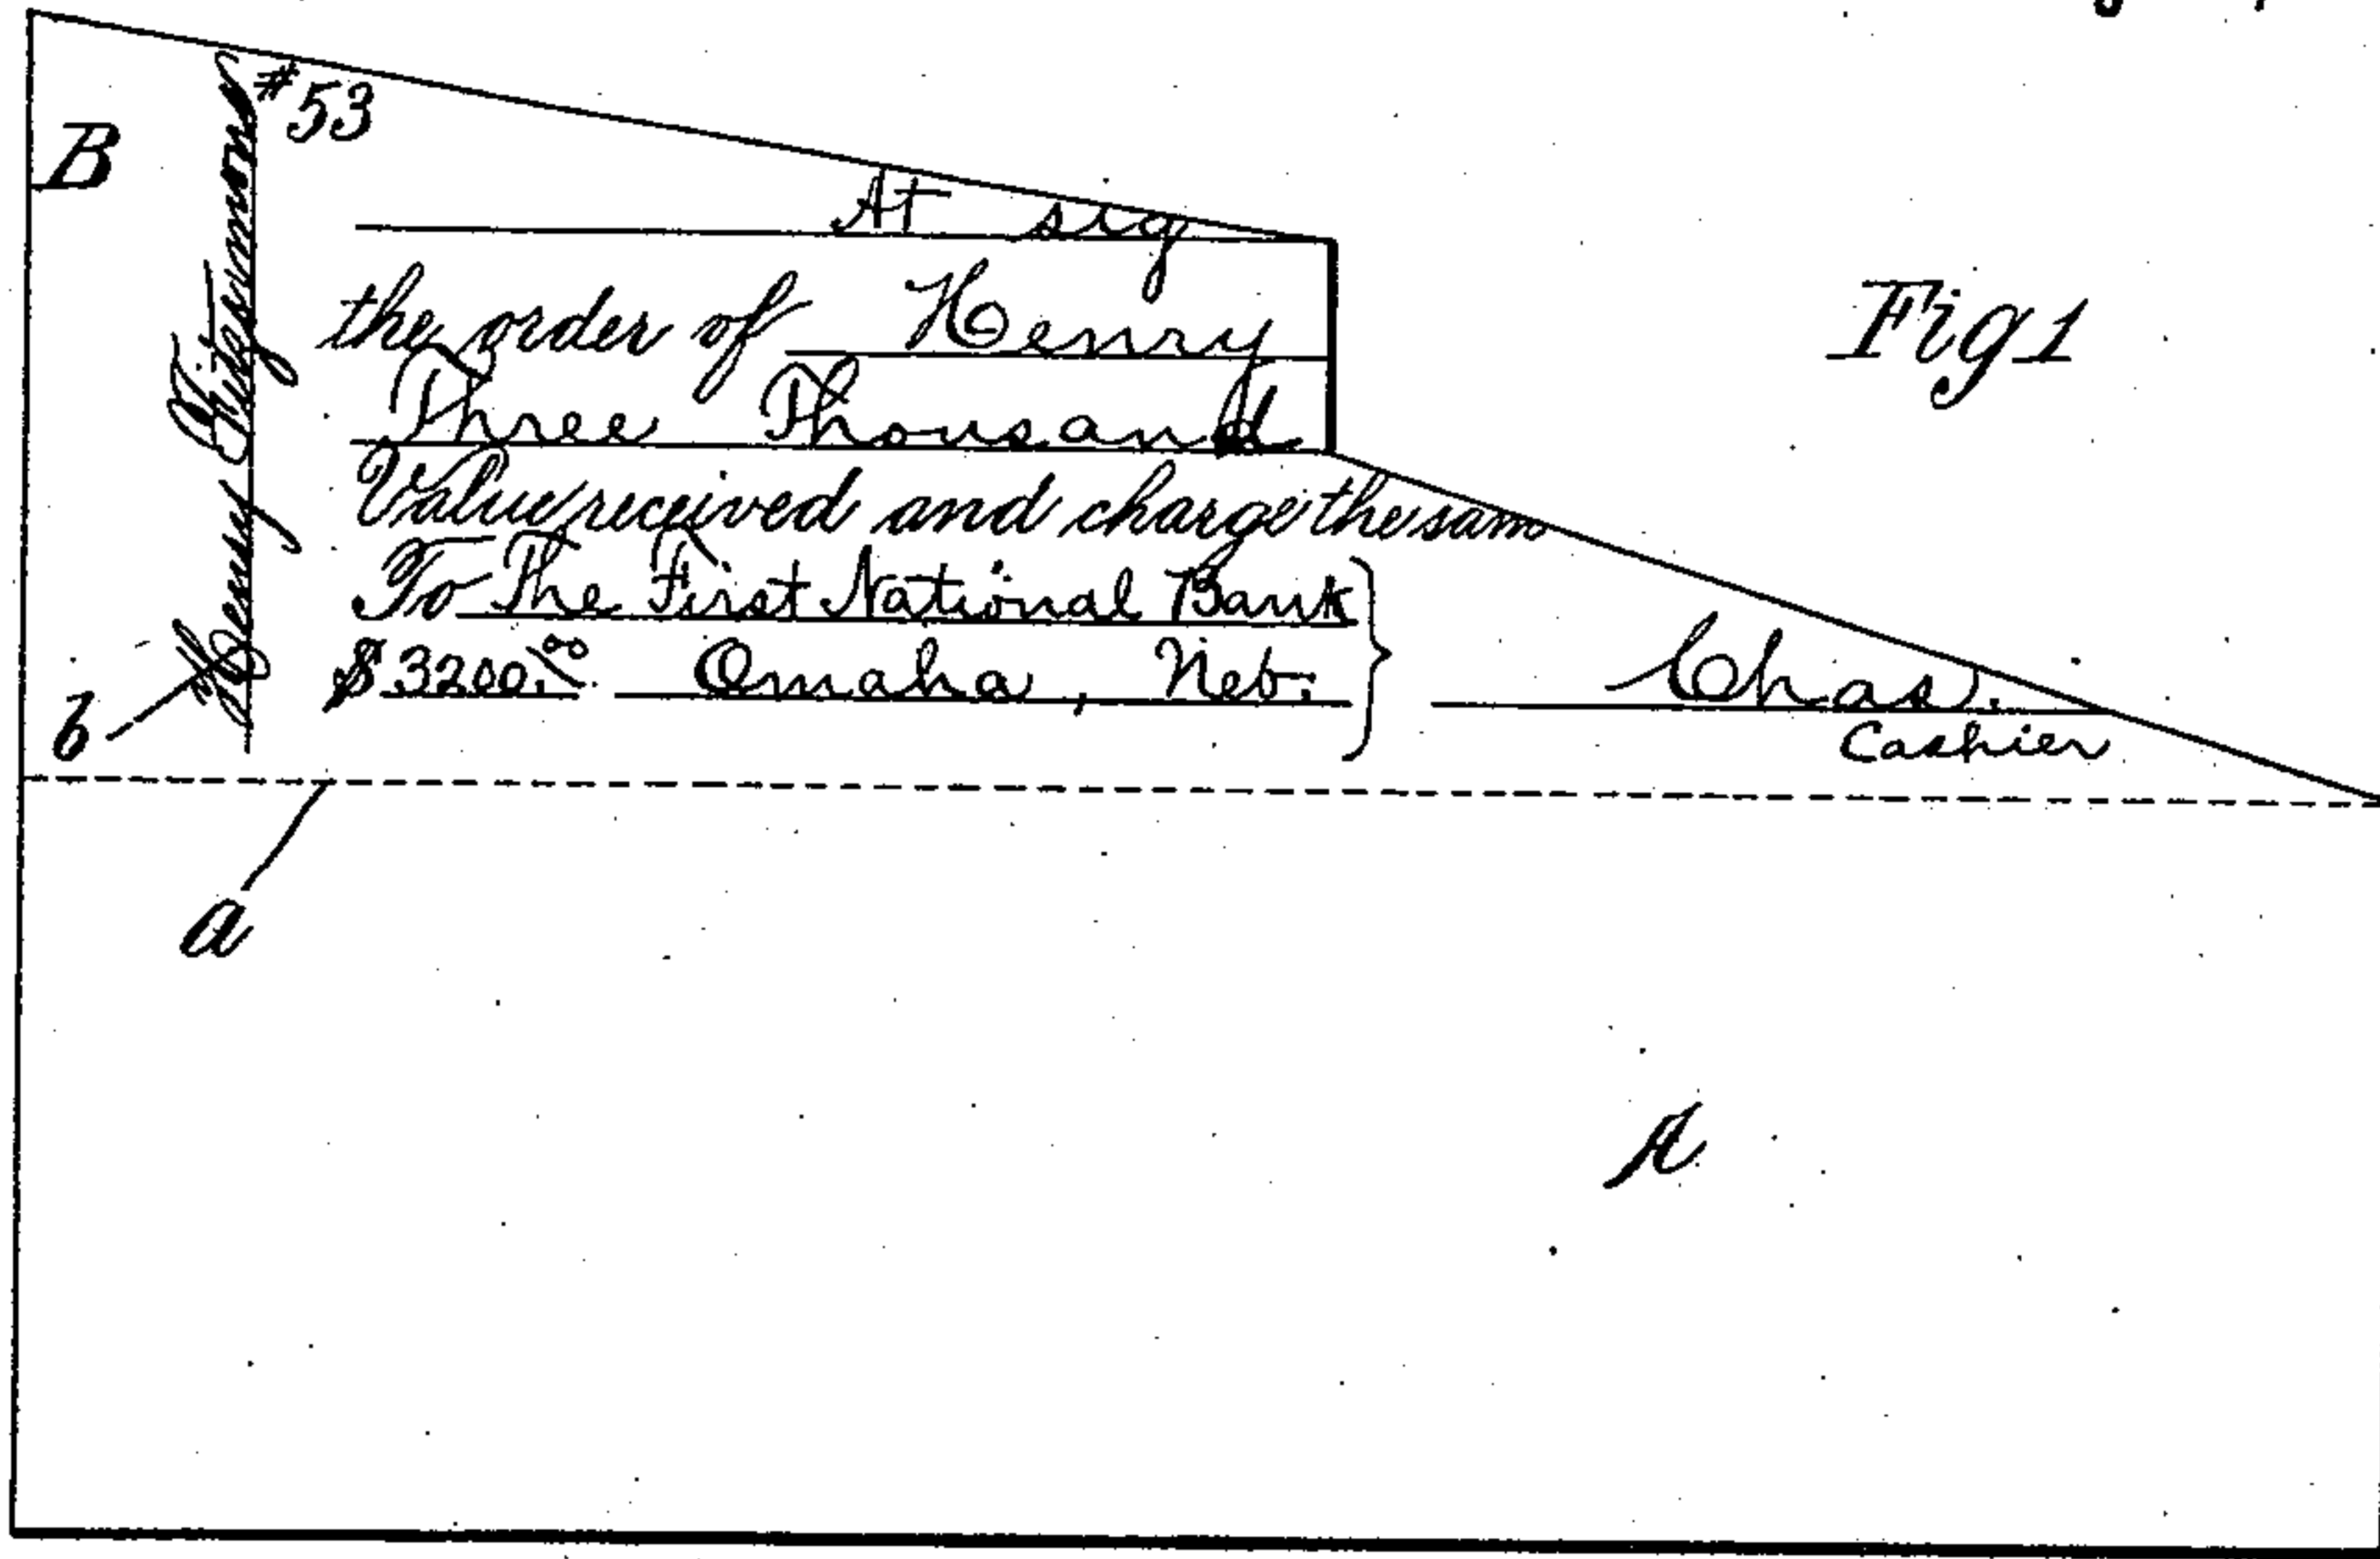 B
#53
At sig
the order of Henry
Fig 1
Three Thousand
Value received and charge the sam
To The First National Bank
$3200.00 Omaha, Neb. Chas.
Cashier
Henry
b
a
A